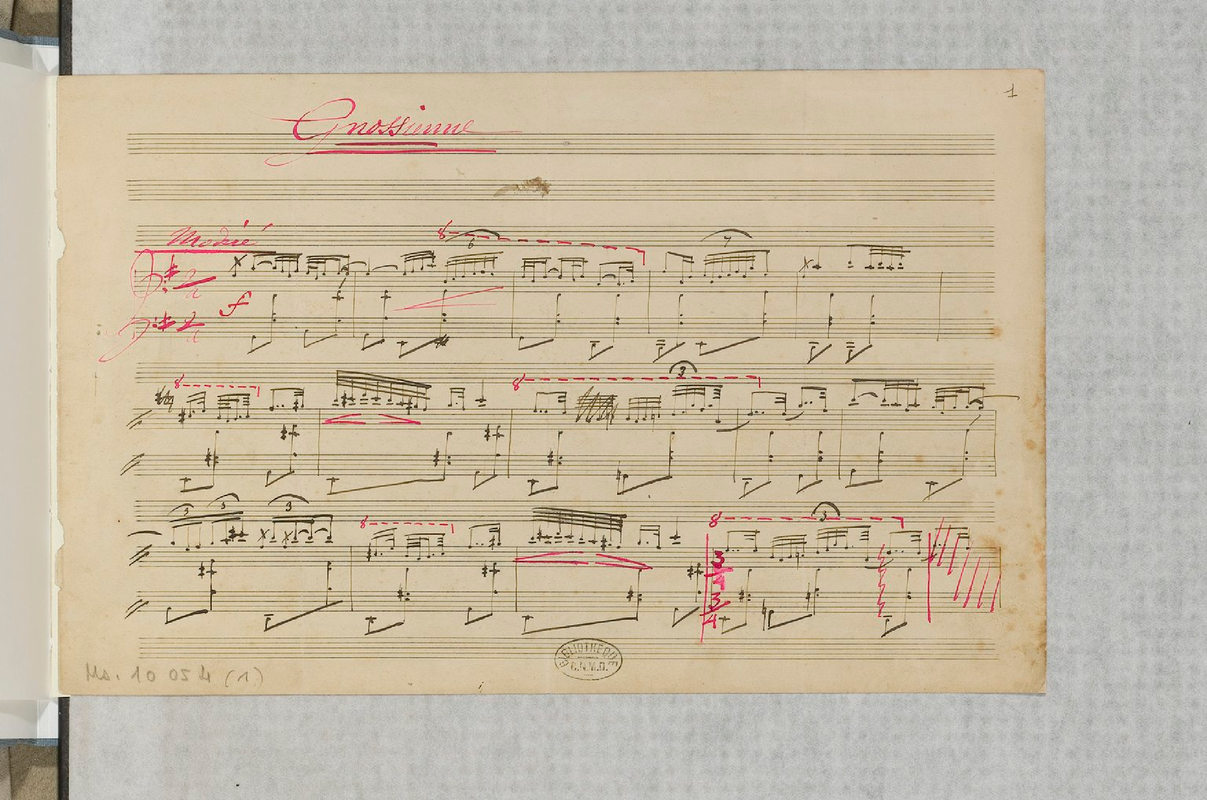 1
Gnossienne
Modéré
8 6 7
2
f
2
8 8 3
3 3 3 8 8 3
3
4
3
4
BIBLIOTHÈQUE
C.N.M.D.
Ms. 10 054 (1)